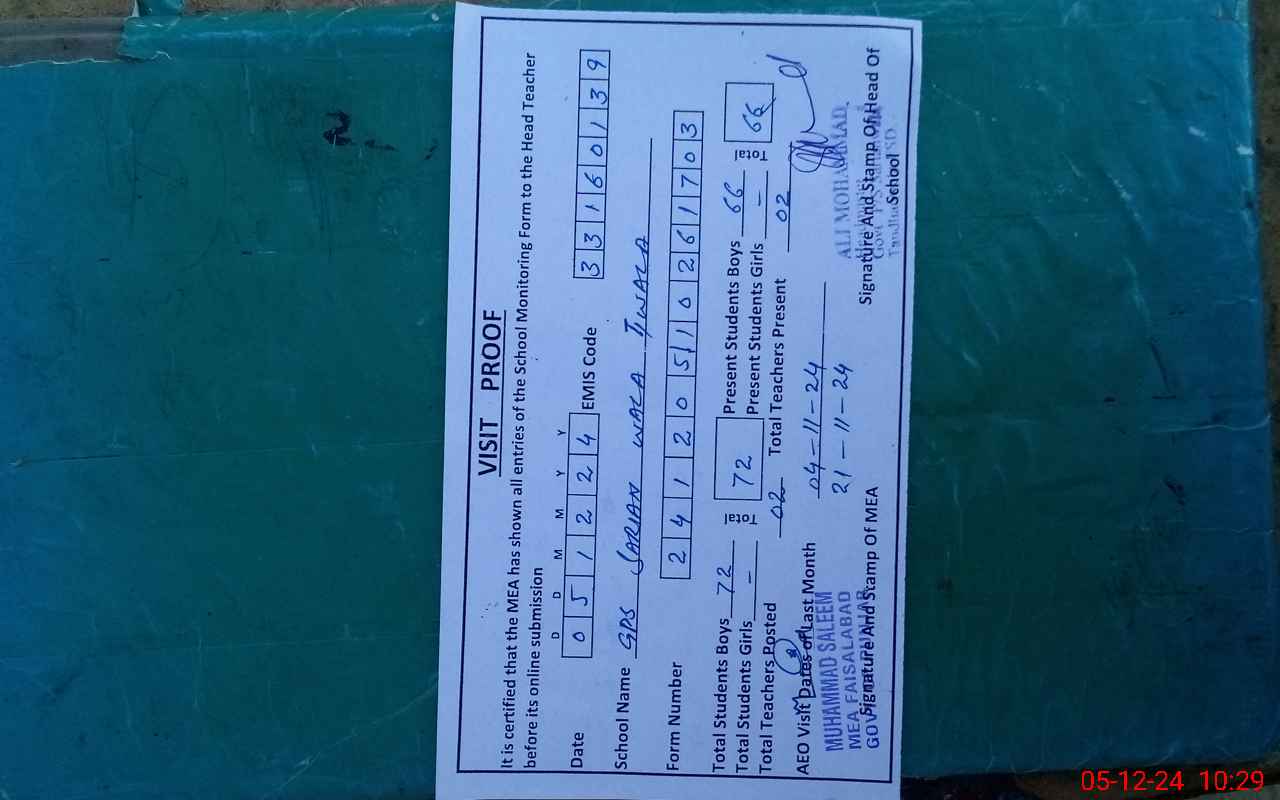 VISIT PROOF
It is certified that the MEA has shown all entries of the School Monitoring Form to the Head Teacher
before its online submission
D D M M Y Y
Date 0 5 1 2 2 4 EMIS Code 3 3 1 6 0 1 3 9
School Name GPS SARIAN WALA TIWALA
Form Number 2 4 1 2 0 5 1 0 2 6 1 7 0 3
Total Students Boys 72 Total 72 Present Students Boys 66 Total 66
Total Students Girls - Present Students Girls -
Total Teachers Posted 02 Total Teachers Present 02
AEO Visit Dates of Last Month 04-11-24
21-11-24
MUHAMMAD SALEEM
MEA FAISALABAD
Signature And Stamp Of MEA
ALI MOHAMMAD
Signature And Stamp Of Head Of
School
05-12-24 10:29